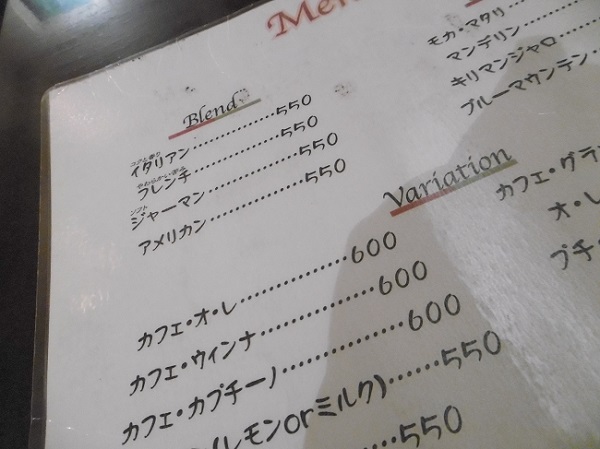 Blend
イタリアン············550
フレンチ············550
ソフト
ジャーマン············550
アメリカン············550
モカ・マタリ
マンデリン
キリマンジャロ
ブルーマウンテン
Variation
カフェ・オ・レ············600
カフェ・ウィンナ············600
カフェ・カプチーノ············600
(レモンorミルク)······550
······550
カフェ・グラ
オ・レ
プチ・